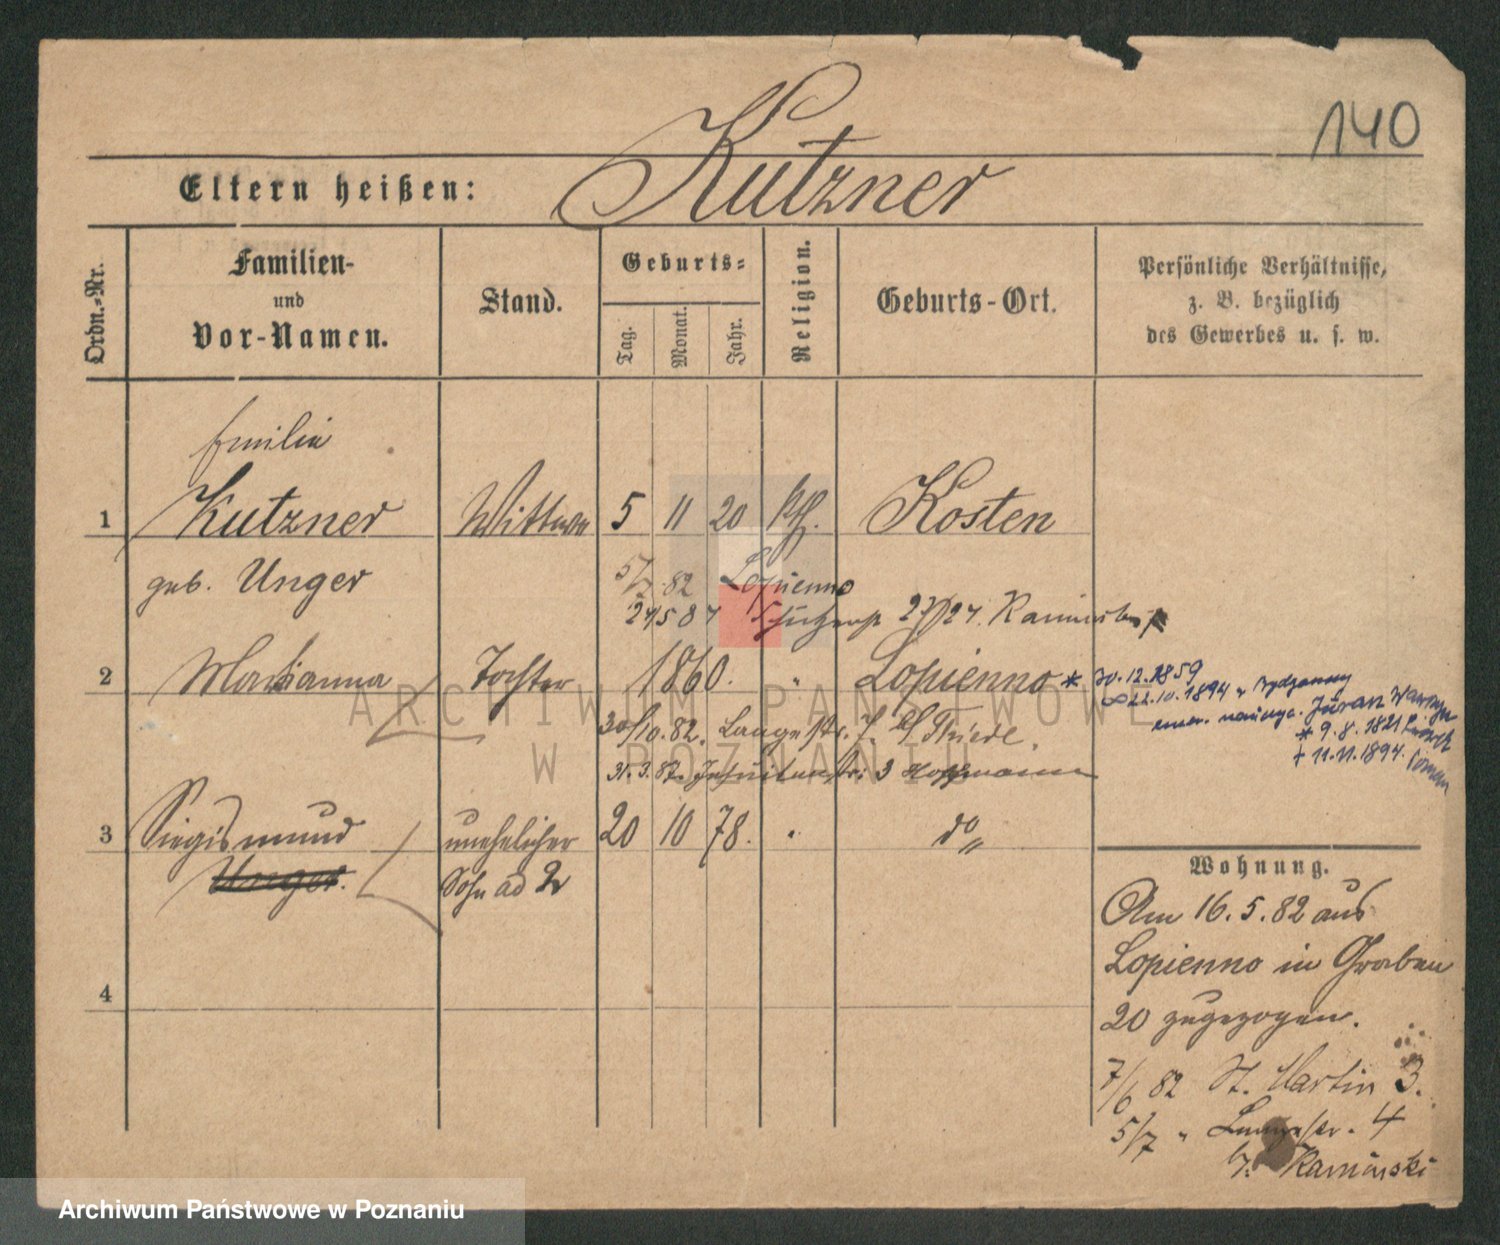 140
Kutzner
Eltern heißen:
Ordn.-Nr.
Familien-
und
Vor-Namen.
Stand.
Geburts-
Tag.
Monat.
Jahr.
Religion.
Geburts-Ort.
Persönliche Verhältnisse,
z. B. bezüglich
des Gewerbes u. s. w.
Emilie
1 Kutzner Wittwe 5 11 20 kth. Kosten
geb. Unger
5/7 82 Lopienno
24 5 87 27/24.
2 Marianna Tochter 1860. " Lopienno * 30.12.1859
∞ 22.10.1894 w Bydgoszczy
emer. Jurasz
* 9.8.1821
+ 11.11.1894.
30/10.82. Langestr. 7. b/ Thiede.
31.3.87. Jesuitenstr. 3 Hoffmann
3 Siegismund unehelicher 20 10 78. " do "
Unger. Sohn ad 2
4
Wohnung.
Am 16.5.82 aus
Lopienno in Graben
20 zugezogen.
7/6 82 St. Martin 3.
5/7 " Langestr. 4
b/. Kaminski
ARCHIWUM PAŃSTWOWE
W POZNANIU
Archiwum Państwowe w Poznaniu